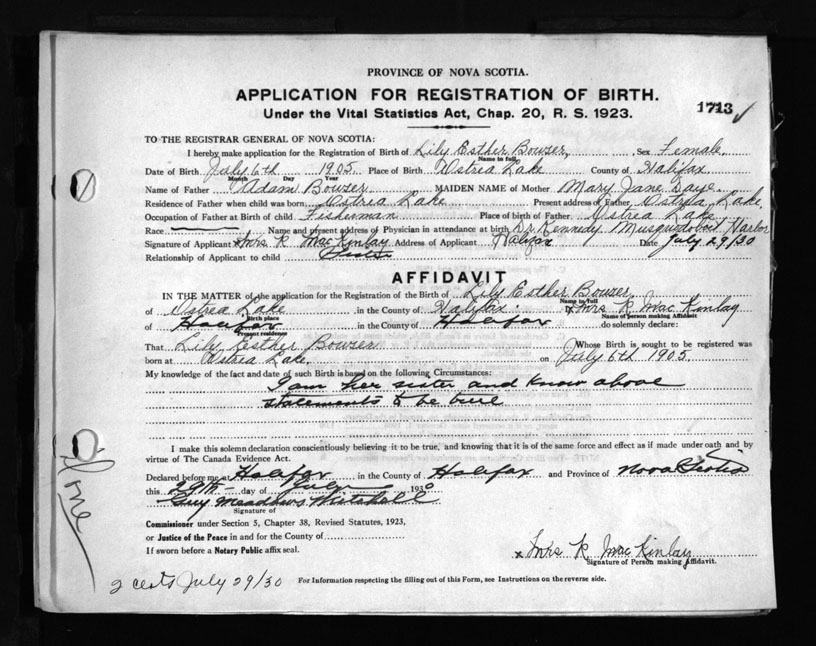 PROVINCE OF NOVA SCOTIA.
APPLICATION FOR REGISTRATION OF BIRTH.
1713 ✓
Under the Vital Statistics Act, Chap. 20, R. S. 1923.
TO THE REGISTRAR GENERAL OF NOVA SCOTIA:
I hereby make application for the Registration of Birth of Lily Esther Bowser, Sex Female
Name in full
Date of Birth July 6th 1905. Place of Birth Ostrea Lake County of Halifax
Month Day Year
Name of Father Adam Bowser MAIDEN NAME of Mother Mary Jane Gaye.
Residence of Father when child was born Ostrea Lake Present address of Father Ostrea Lake
Occupation of Father at Birth of child Fisherman Place of birth of Father Ostrea Lake
Race Name and present address of Physician in attendance at birth Dr Kennedy Musquodoboit Harbor
Signature of Applicant x Mrs R Mac Kinlay Address of Applicant Halifax Date July 29/30
Relationship of Applicant to child Sister
AFFIDAVIT
IN THE MATTER of the application for the Registration of the Birth of Lily Esther Bowser
Name in full
of Ostrea Lake in the County of Halifax x Mrs R Mac Kinlay
Birth place Name of person making Affidavit
of Halifax in the County of Halifax do solemnly declare:
Present residence
That Lily Esther Bowser Whose Birth is sought to be registered was
born at Ostrea Lake. on July 6th 1905.
My knowledge of the fact and date of such Birth is based on the following Circumstances:
I am her sister and know above
statements to be true
I make this solemn declaration conscientiously believing it to be true, and knowing that it is of the same force and effect as if made under oath and by
virtue of The Canada Evidence Act.
Declared before me at Halifax in the County of Halifax and Province of Nova Scotia
this 29th day of July 1930
Guy Meadows Mitchell
Signature of
Commissioner under Section 5, Chapter 38, Revised Statutes, 1923,
or Justice of the Peace in and for the County of
If sworn before a Notary Public affix seal.
x Mrs R Mac Kinlay
Signature of Person making Affidavit.
Done
2 certs July 29/30
For Information respecting the filling out of this Form, see Instructions on the reverse side.